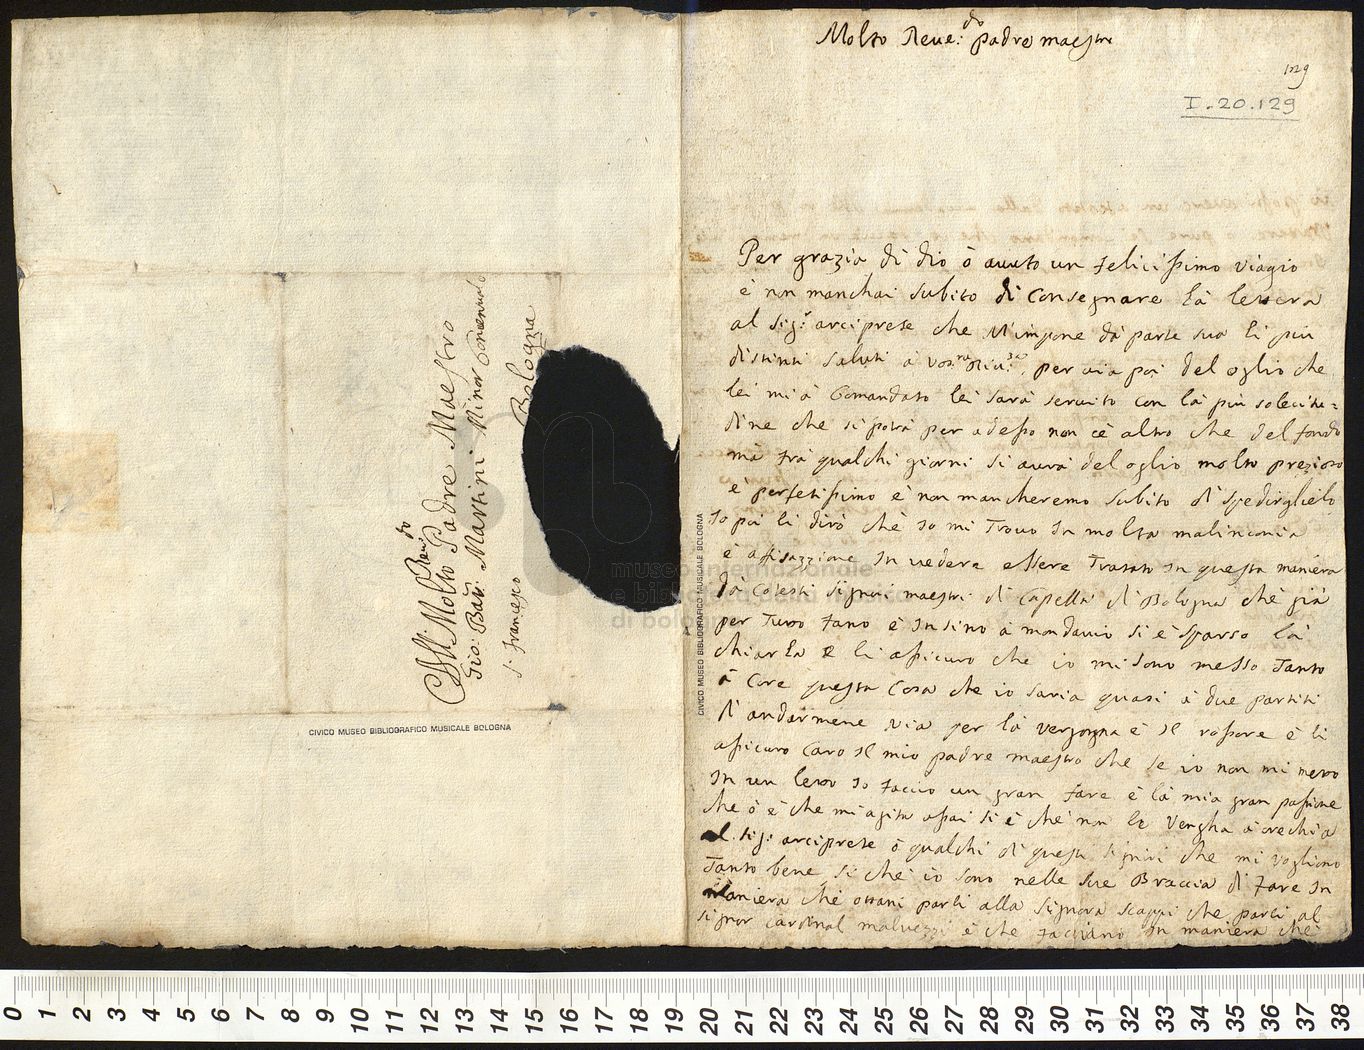 Molto Reue:do padre maestro
129
I.20.129
Per grazia di dio ò auuto un felicissimo viagio
è non manchai subito di Consegnare là letera
al sig:r arciprete che M'impone dà parte sua li più
distinti saluti à Vos:ra Riu:za per via poi del oglio che
lei mi à Comandato lei sarà seruito con là più solecitu=
dine che si potrà per adesso non cè altro che del fondo
mà frà qualchi giorni si aurà del oglio molto prezioso
e perfetissimo è non mancheremo subito di spedirglielo
Io poi li dirò chè io mi trouo in molta malinconia
è afisazzione in uedere essere Tratato in questa maniera
dà cotesti signiri maestri di capella di Bologna chè già
per Tutto fano è insino à mondauio si è sparso là
chiarla è li assicuro che io mi sono messo Tanto
à Core questa Cosa che io saria quasi à due partiti
di andarmene via per là vergogna è il rossore è li
assicuro Caro il mio padre maestro che se io non mi meto
in un letto io faccio un gran fare è là mia gran passione
che ò è che mi agita assai si è chè non le Vengha à orechia
al sig:r arciprete ò qualchi di questi signiri che mi vogliono
Tanto bene, si chè io sono nelle sue Braccia di fare in
maniera che ottani parli alla signora scappi che parli al
signor cardinal maluezzi è che facciano in maniera chè
All Molto Reue:do Padre Maestro
Gio: Bat: Martini Minor Conuentuale
S: Francesco
Bologna
CIVICO MUSEO BIBLIOGRAFICO MUSICALE BOLOGNA
CIVICO MUSEO BIBLIOGRAFICO MUSICALE BOLOGNA
museo internazionale
e biblioteca della musica
di bologna
0 1 2 3 4 5 6 7 8 9 10 11 12 13 14 15 16 17 18 19 20 21 22 23 24 25 26 27 28 29 30 31 32 33 34 35 36 37 38